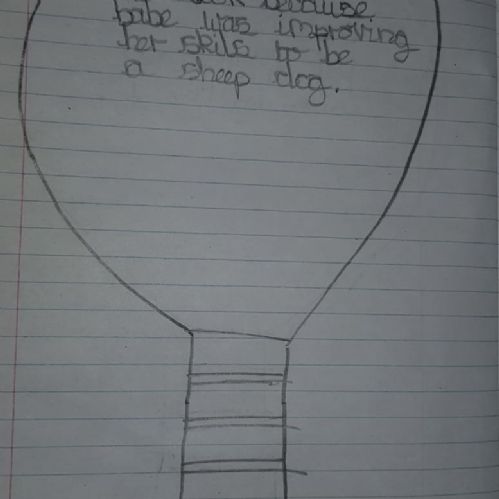 because
babe was improving
her skils to be
a sheep dog.